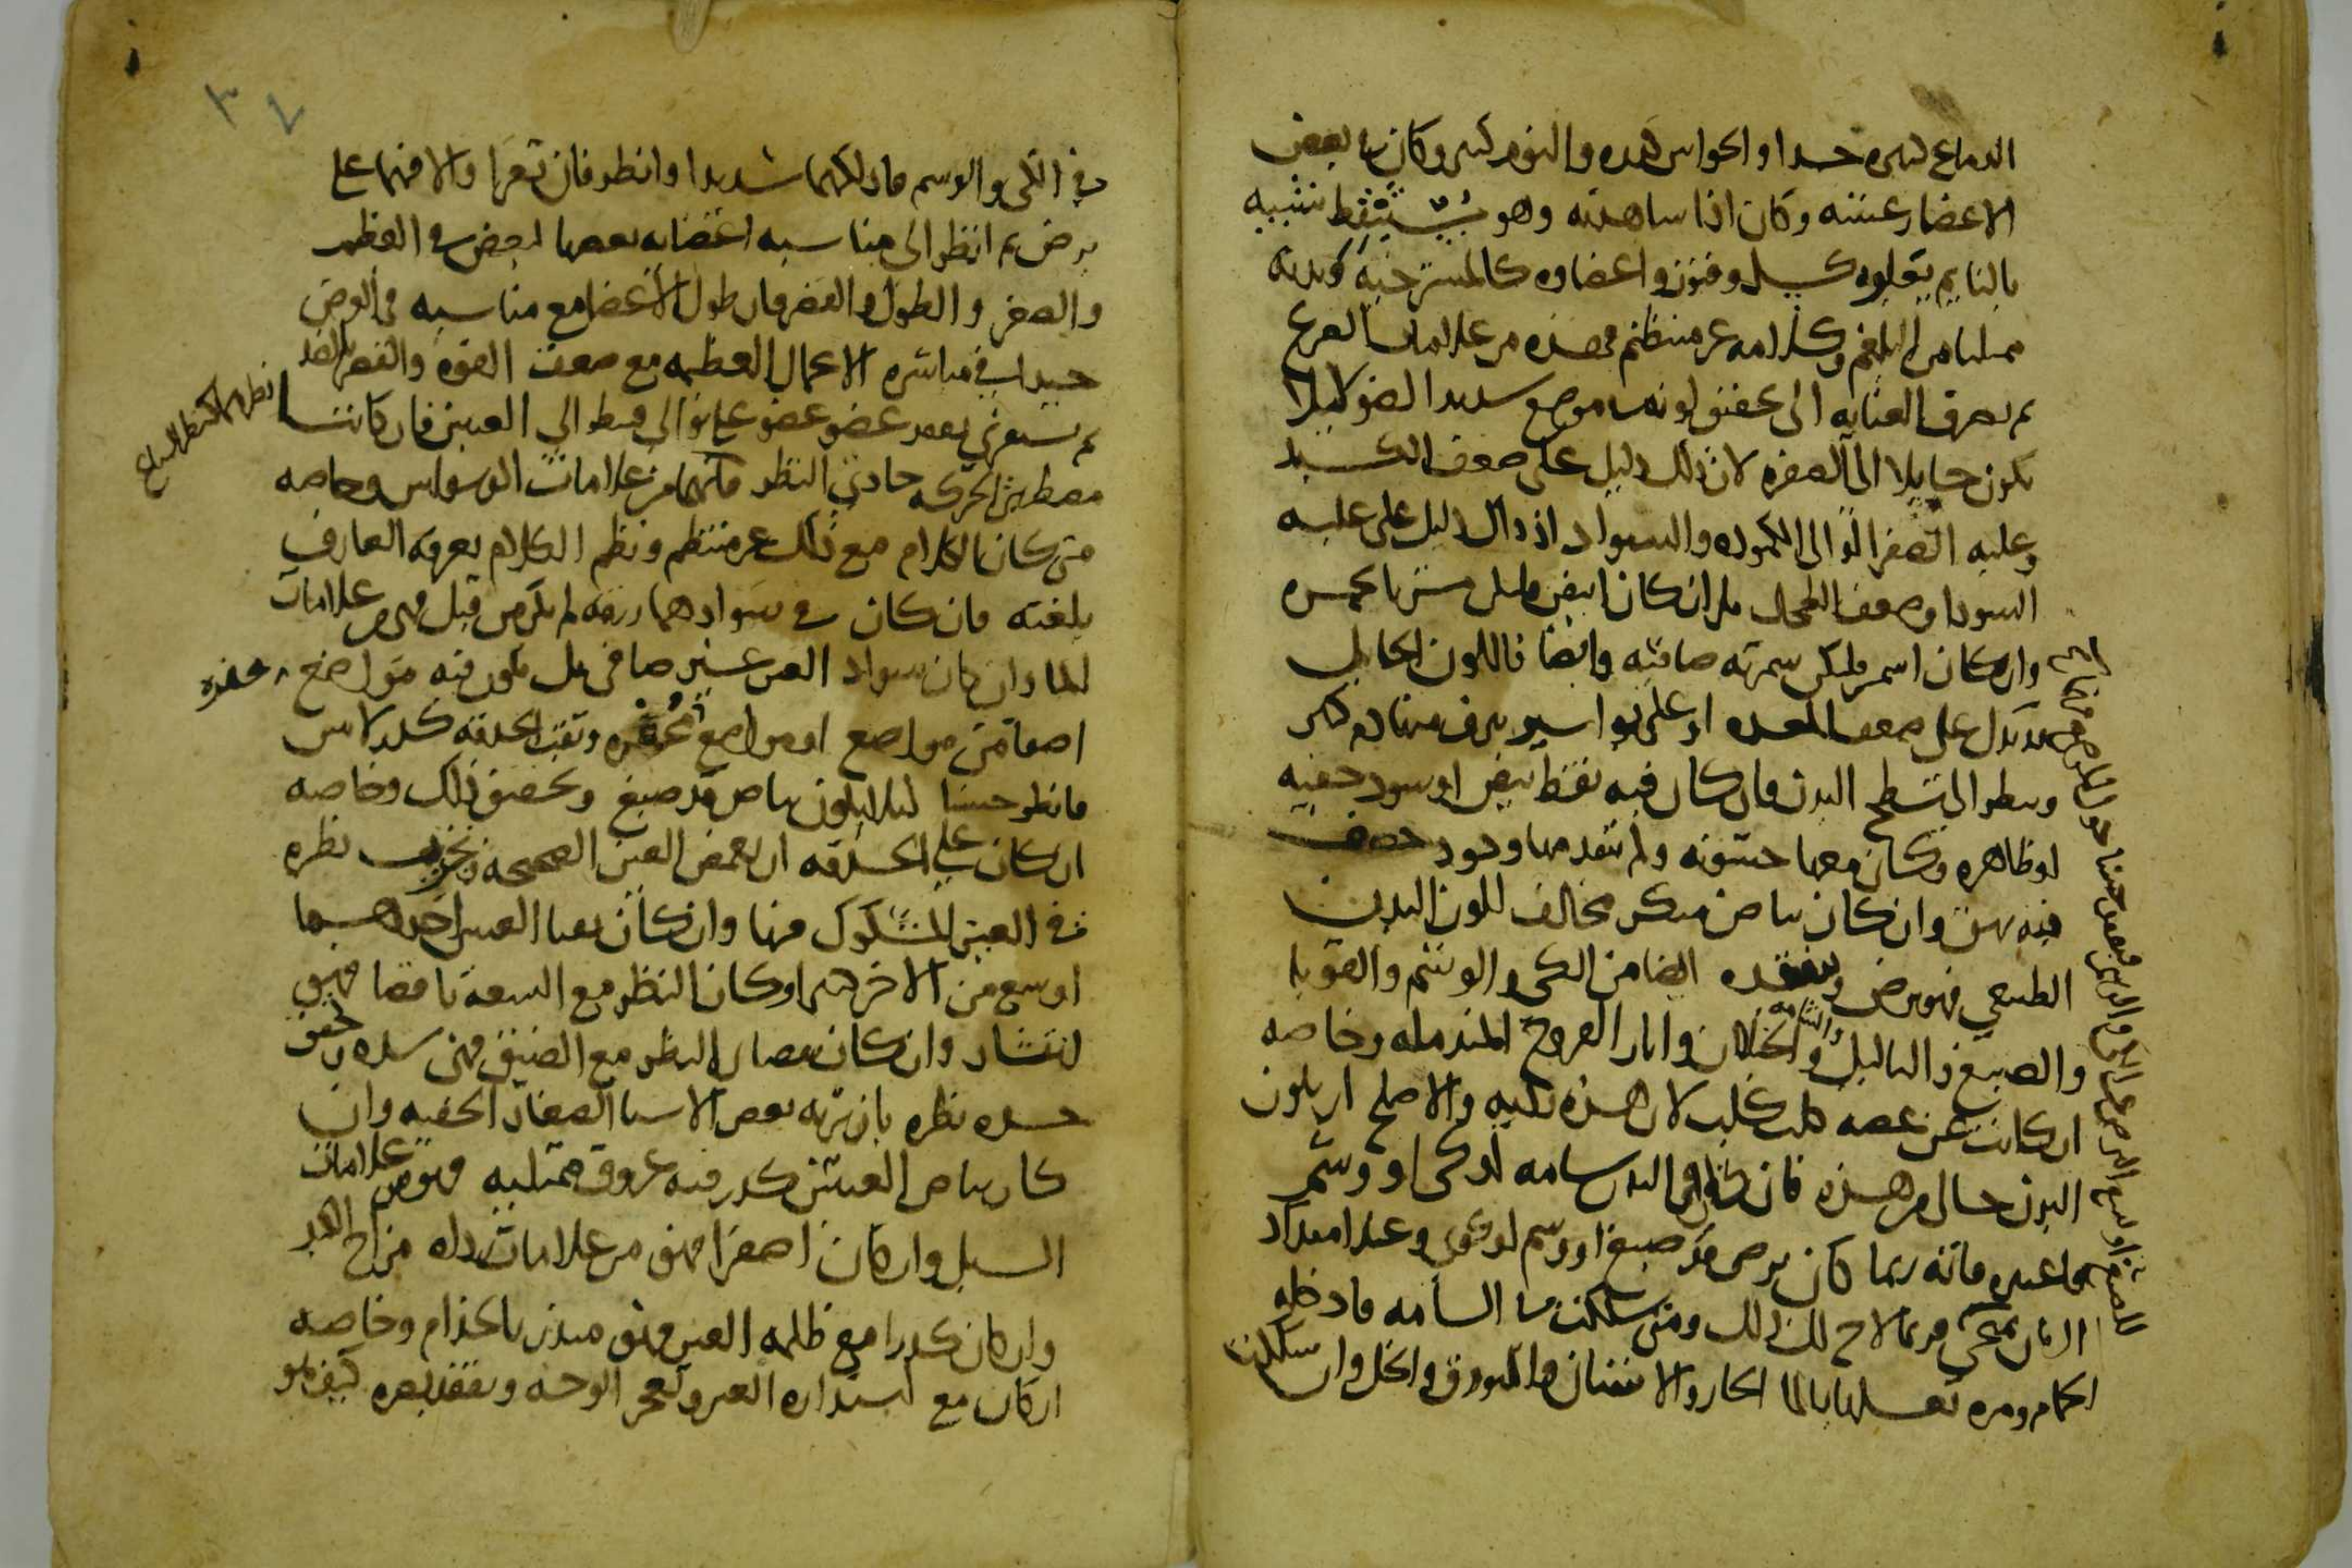 الدماغ كثيره جدا والحواس كدره والنوم كثير وكان بعض
الاعضا رعشه وكان اذا شاهدته وهو يستيقظ شبيه
بالنايم يعلوه كسل وفتور واعضاوه كالمسترخيه وبدنه
ممتليا من البلغم وكلامه غير منتظم فهذه من علامات الصرع
ثم تصرف العنايه الى تحقيق لونه في موضع شديد الضو لئلا
يكون حايلا الى الصفره لان ذلك دليل على ضعف الكبد
وغلبه الصفرا او الى الكموده والسواد اذ ذاك دليل على غلبه
السودا وضعف الطحال بل ان كان ابيض فليكن مشربا بحمره
وان كان اسمر فليكن سمرته صافيه وايضا فاللون الحايل
قد يدل على ضعف المعده او على بواسير ينزف منها دم كثير
وينظر الى سطح البدن فان كان فيه نقط بيض او سود خفيه
او ظاهره وكان معها خشونه ولم يتقدمها وجود حصف
فيه بهق وان كان بياض منكر مخالف للون البدن
الطبيعي فهو برص ويتفقده ايضا من الكي والوشم والقوبا
والصبغ والثاليل والشامه والخيلان واثار القروح المندمله وخاصه
ان كانت عن عضه كلب كلب لان هذه نكيه والاصلح ان يكون
البدن خال من هذه فان كان في البدن شامه او كي او وشم
فاختبره فانه ربما كان برص قد صبغ او وسم او كوي وعند امتداد
الزمان يمحى فربما لاح لك ذلك ومتى شككت في الشامه فادخله
الحمام ومره بغسلها بالما الحار والاشنان والبورق والخل وان شككت
في الكي والوسم فادلكهما شديدا وانظر فان تغيرا والا فهما على
برص ثم انظر الى مناسبه اعضايه بعضها لبعض في العظم
والصغر والطول والقصر فان طول الاعضا مع مناسبه في العرض
جيدا في مباشره الاعمال العظيمه مع ضعف القوه والقصر بالضد
ثم يستقري بعد عضو عضو على توالي فينظر الى العينين فان كانتا
نظرهما كنظر السباع
مضطربتي الحركه حادتي النظر فانهما من علامات الوسواس وخاصه
متى كان الكلام مع ذلك غير منتظم ونظم الكلام يعرفه العارف
بلغته فان كان في سوادهما زرقه لم تكن من قبل فهي من علامات
الما وان كان سواد العين غير صافي بل يكون فيه مواضع
اصفا من مواضع او مواضع مُحفّره وثقب الحدقه كدر لا يبين
فانظر حسنا ليلا يكون بياض قد صبغ وتحقيق ذلك وخاصه
ان كان على الحدقه ان يغمض العين الصحيحه وتجرب نظره
في العين المشكوك فيها وان كان ثقبا العينين احدهما
اوسع من الاخر او كان النظر مع السعه ناقصا فهو
انتشار وان كان نقصان النظر مع الضيق فهي سده وتحقق
جوده نظره بان تريه بعض الاشيا الصغار الخفيه وان
كان بياض العينين كدر فيه عروق ممتليه فهو من علامات
السبل وان كان اصفرا فهو من علامات رداه مزاج الكبد
وان كان كدرا مع ظلمه العين فهو منذر بالجذام وخاصه
ان كان مع استداره العين وتعجر الوجه وتفقد بصره كيف هو